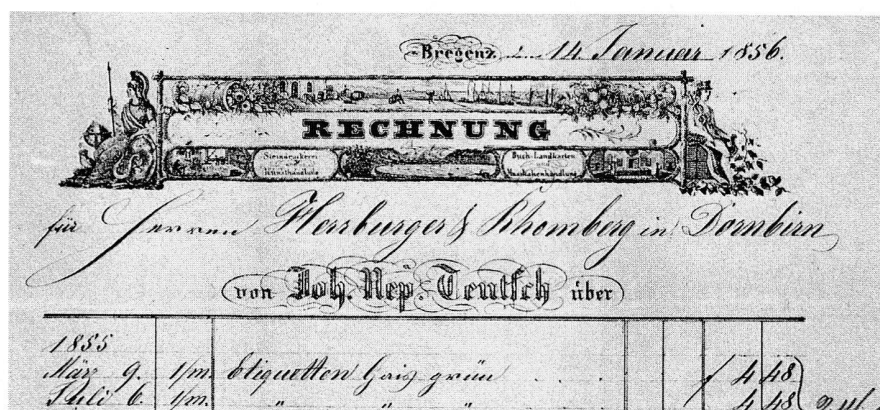 Bregenz, den 14. Januar 1856.
RECHNUNG
Steindruckerei und Kunsthandlung
Buch-Landkarten und Musikalienhandlung
für Herren Herrburger & Rhomberg in Dornbirn
von Joh. Nep. Teutsch über
1855
März 9. 1/m. Etiquetten Gais grün . . . f 4 48
Juli 6. 1/m. " " " 4 48